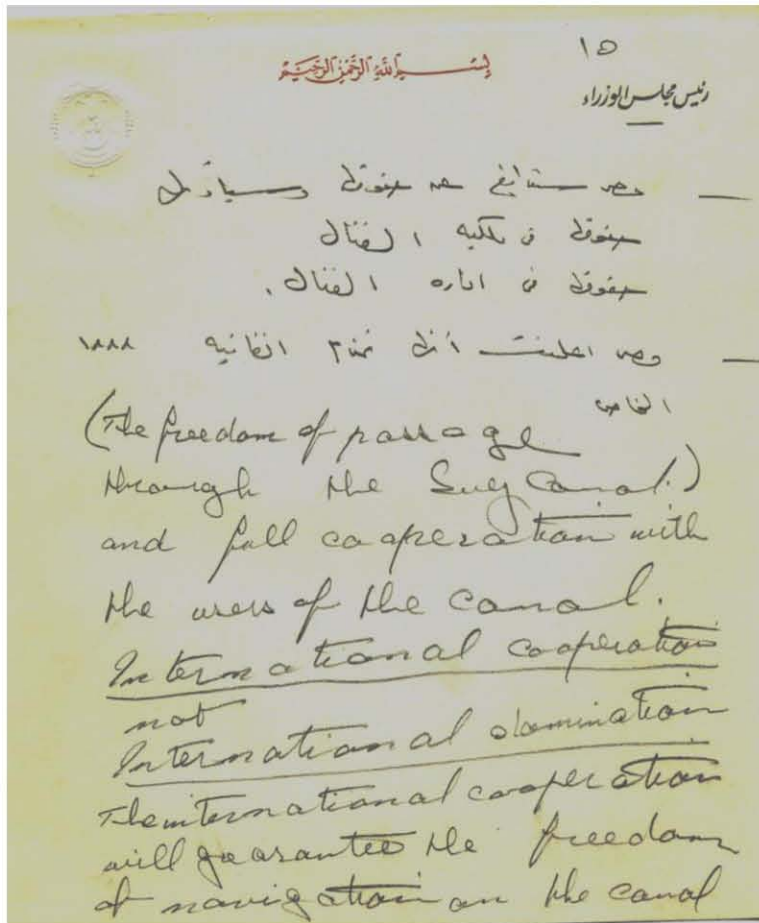 بسم الله الرحمن الرحيم
١٥
رئيس مجلس الوزراء
— مصر ستدافع عن حقوقها وسيادتها
حقوقها في ملكية القنال
حقوقها في ادارة القنال.
— مصر اعلنت أنها اتفاقية ١٨٨٨
الخاص
(The freedom of passage
through the Suez Canal.)
and full cooperation with
the users of the canal.
International cooperation
not
International domination
The international cooperation
will guarantee the freedom
of navigation on the canal